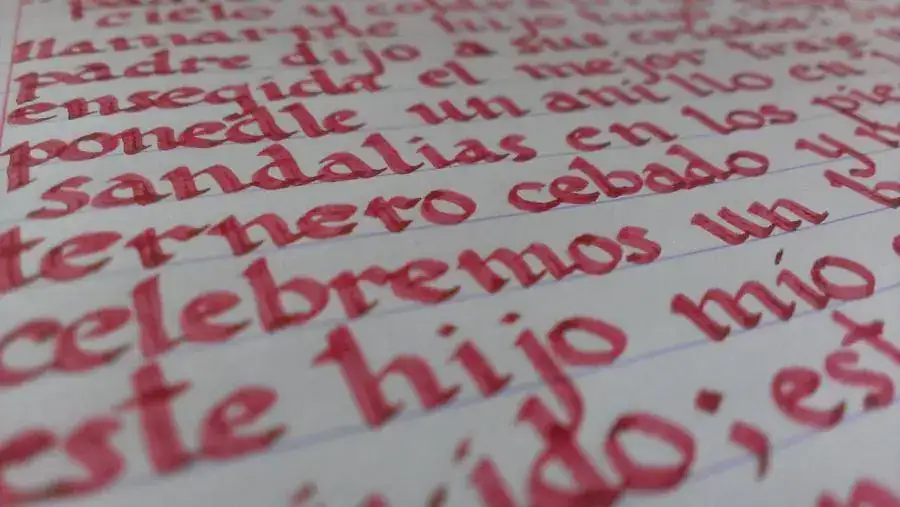 cielo y contra
llamarme hijo tuyo
padre dijo a sus criados:
enseguida el mejor traje
ponedle un anillo en
sandalias en los pies
ternero cebado y
celebremos un b
este hijo mío
ido; est